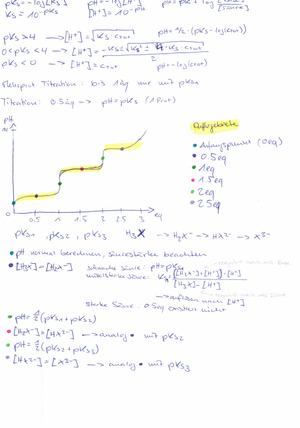 pKs = -log(Ks) [H⁺] = 10^-pH
Ks = 10^-pKs
pKs > 4 → [H⁺] = √Ks · ctot pH = ½ · (pKs - log(ctot))
0 < pKs < 4 → [H⁺] =
pKs < 0 → [H⁺] = ctot pH = -log(ctot)
Titration: bis 1 Äq nur mit pKs1
Titration: 0.5 Äq → pH = pKs (1 Prot)
pH
Anfangspunkt (0 eq)
0.5 eq
1 eq
1.5 eq
2 eq
2.5 eq
0.5 1 1.5 2 2.5 3 eq
pKs1, pKs2, pKs3 H₃X → H₂X⁻ → HX²⁻ → X³⁻
pH normal berechnen, Säurestärke beachten
[H₃X] = [H₂X⁻] schwache Säure: pH = pKs
mittelstarke Säure: Ks =
→ auflösen nach [H⁺]
starke Säure: 0.5 Äq existiert nicht
pH = ½ (pKs1 + pKs2)
[H₂X⁻] = [HX²⁻] → analog • mit pKs2
pH = ½ (pKs2 + pKs3)
[HX²⁻] = [X³⁻] → analog • mit pKs3